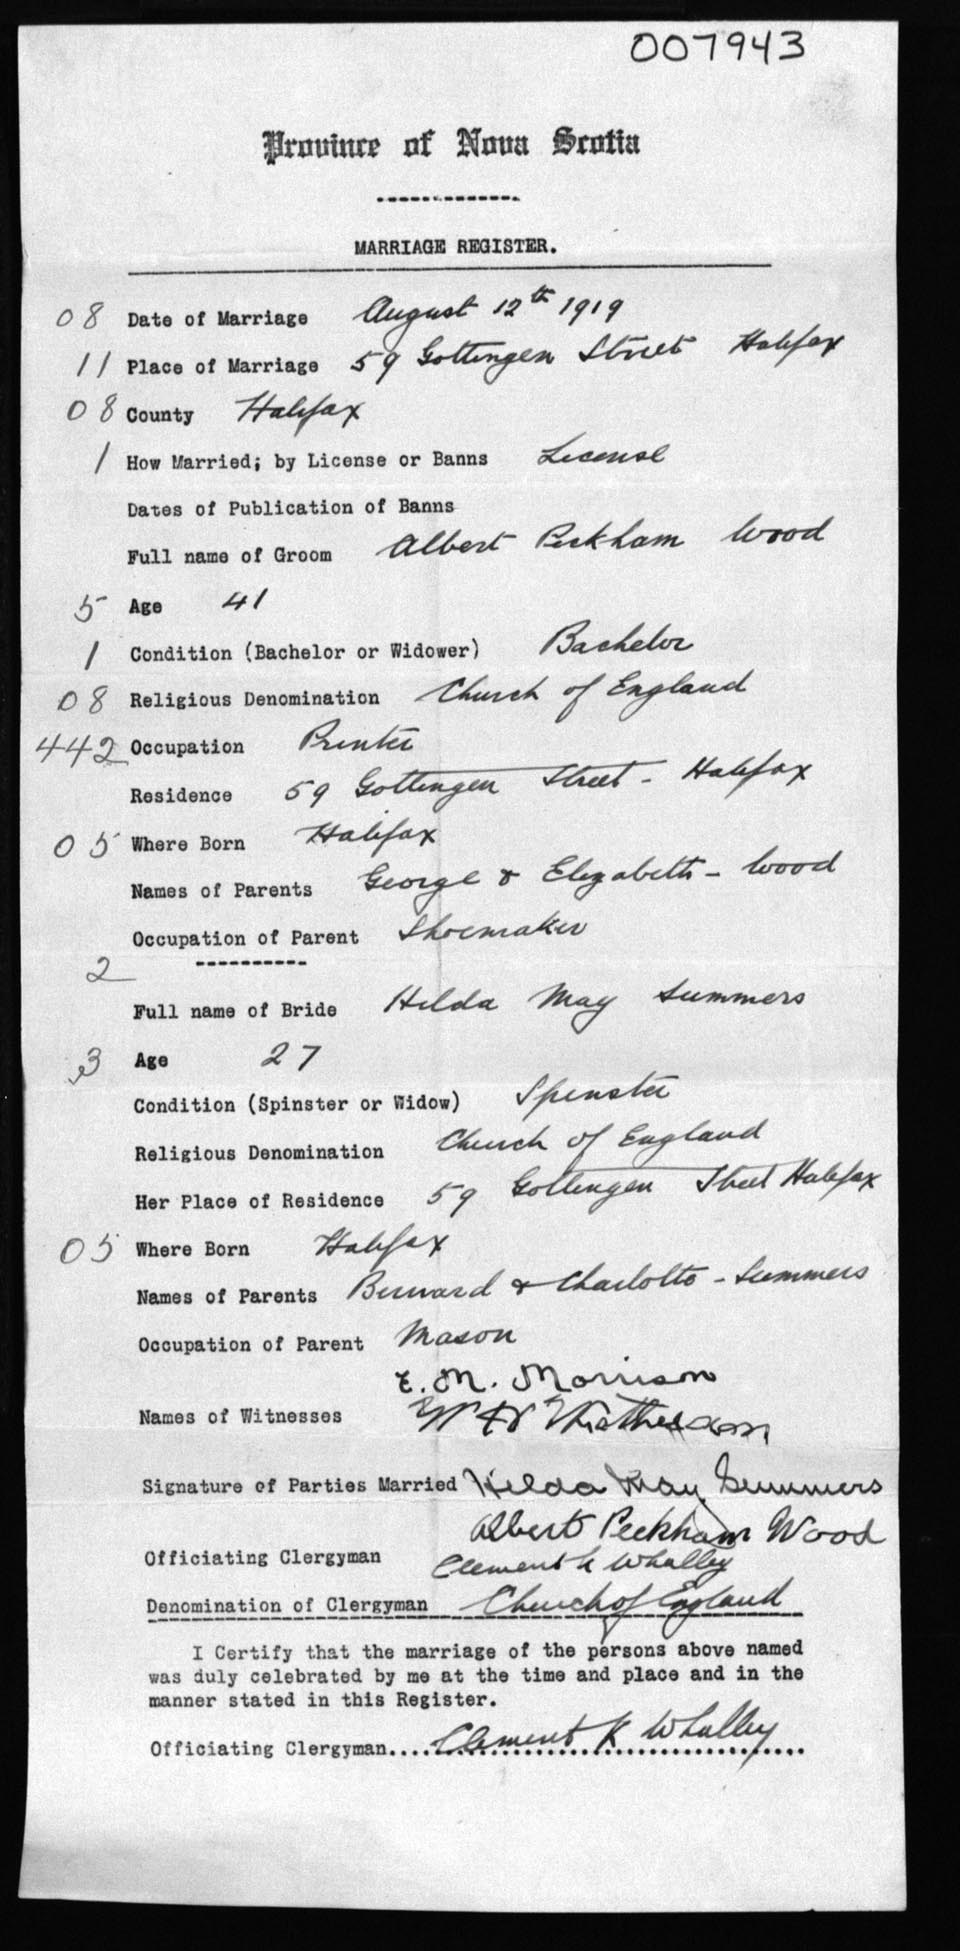 007943
Province of Nova Scotia
MARRIAGE REGISTER.
08 Date of Marriage August 12th 1919
11 Place of Marriage 59 Gottingen Street Halifax
08 County Halifax
1 How Married; by License or Banns License
Dates of Publication of Banns
Full name of Groom Albert Peckham Wood
5 Age 41
1 Condition (Bachelor or Widower) Bachelor
08 Religious Denomination Church of England
442 Occupation Printer
Residence 59 Gottingen Street - Halifax
05 Where Born Halifax
Names of Parents George & Elizabeth - Wood
Occupation of Parent Shoemaker
2
Full name of Bride Hilda May Summers
3 Age 27
Condition (Spinster or Widow) Spinster
Religious Denomination Church of England
Her Place of Residence 59 Gottingen Street Halifax
05 Where Born Halifax
Names of Parents Bernard & Charlotte - Summers
Occupation of Parent Mason
E. M. Morrison
Names of Witnesses W H
Signature of Parties Married Hilda May Summers
Albert Peckham Wood
Officiating Clergyman Clement K Whalley
Denomination of Clergyman Church of England
I Certify that the marriage of the persons above named
was duly celebrated by me at the time and place and in the
manner stated in this Register.
Officiating Clergyman.... Clement K Whalley